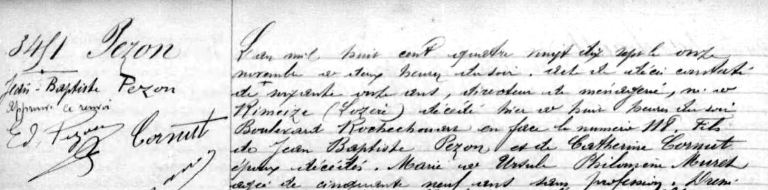 3451 Pezon
Jean-Baptiste Pezon
Approuvé ce renvoi
Ed. Pezon Cornut
L'an mil huit cent quatre vingt dix sept le onze
novembre à deux heures du soir. Acte de décès constaté
de soixante onze ans, directeur de ménagerie, né à
Rimeize (Lozère) décédé hier à huit heures du soir
Boulevard Rochechouart en face le numéro 118. Fils
de Jean Baptiste Pezon et de Catherine Cornut
époux décédés. Marié à Ursule Philomène Muret
agée de cinquante neuf ans sans profession.